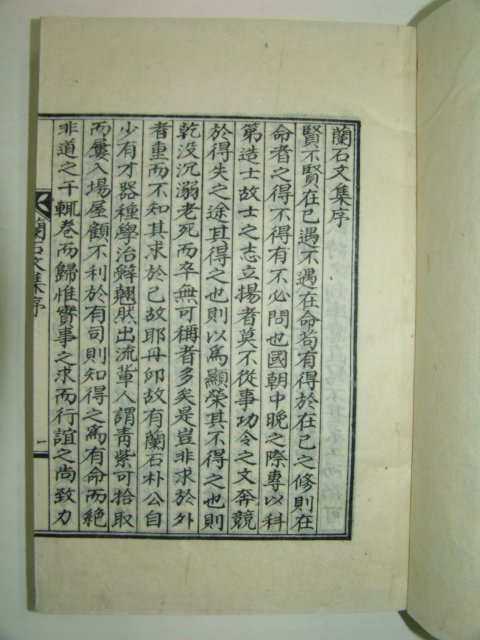 蘭石文集序
賢不賢在己遇不遇在命苟有得於在己之修則在
命者之得不得有不必問也國朝中晚之際專以科
第造士故士之志立揚者莫不從事功令之文奔競
於得失之途其得之也則以爲顯榮其不得之也則
乾没沉溺老死而卒無可稱者多矣是豈非求於外
者重而不知其求於己故耶丹邱故有蘭石朴公自
少有才器種學治辭翹然出流輩人謂靑紫可拾取
而屢入場屋顧不利於有司則知得之爲有命而絶
非道之干輒卷而歸惟實事之求而行誼之尚致力
蘭石文集序
一